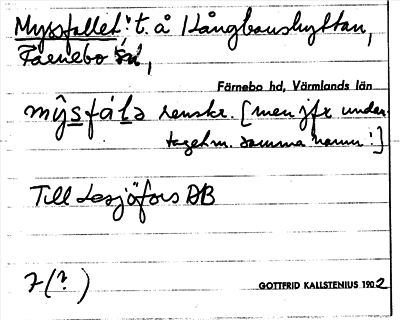 Myssfallet, t. å Långbanshyttan,
Färnebo sn,
Färnebo hd, Värmlands län
mŷsfála renskr. [men jfr under
tagelm. samma namn!]
Till Lesjöfors AB
7(?)
GOTTFRID KALLSTENIUS 1902